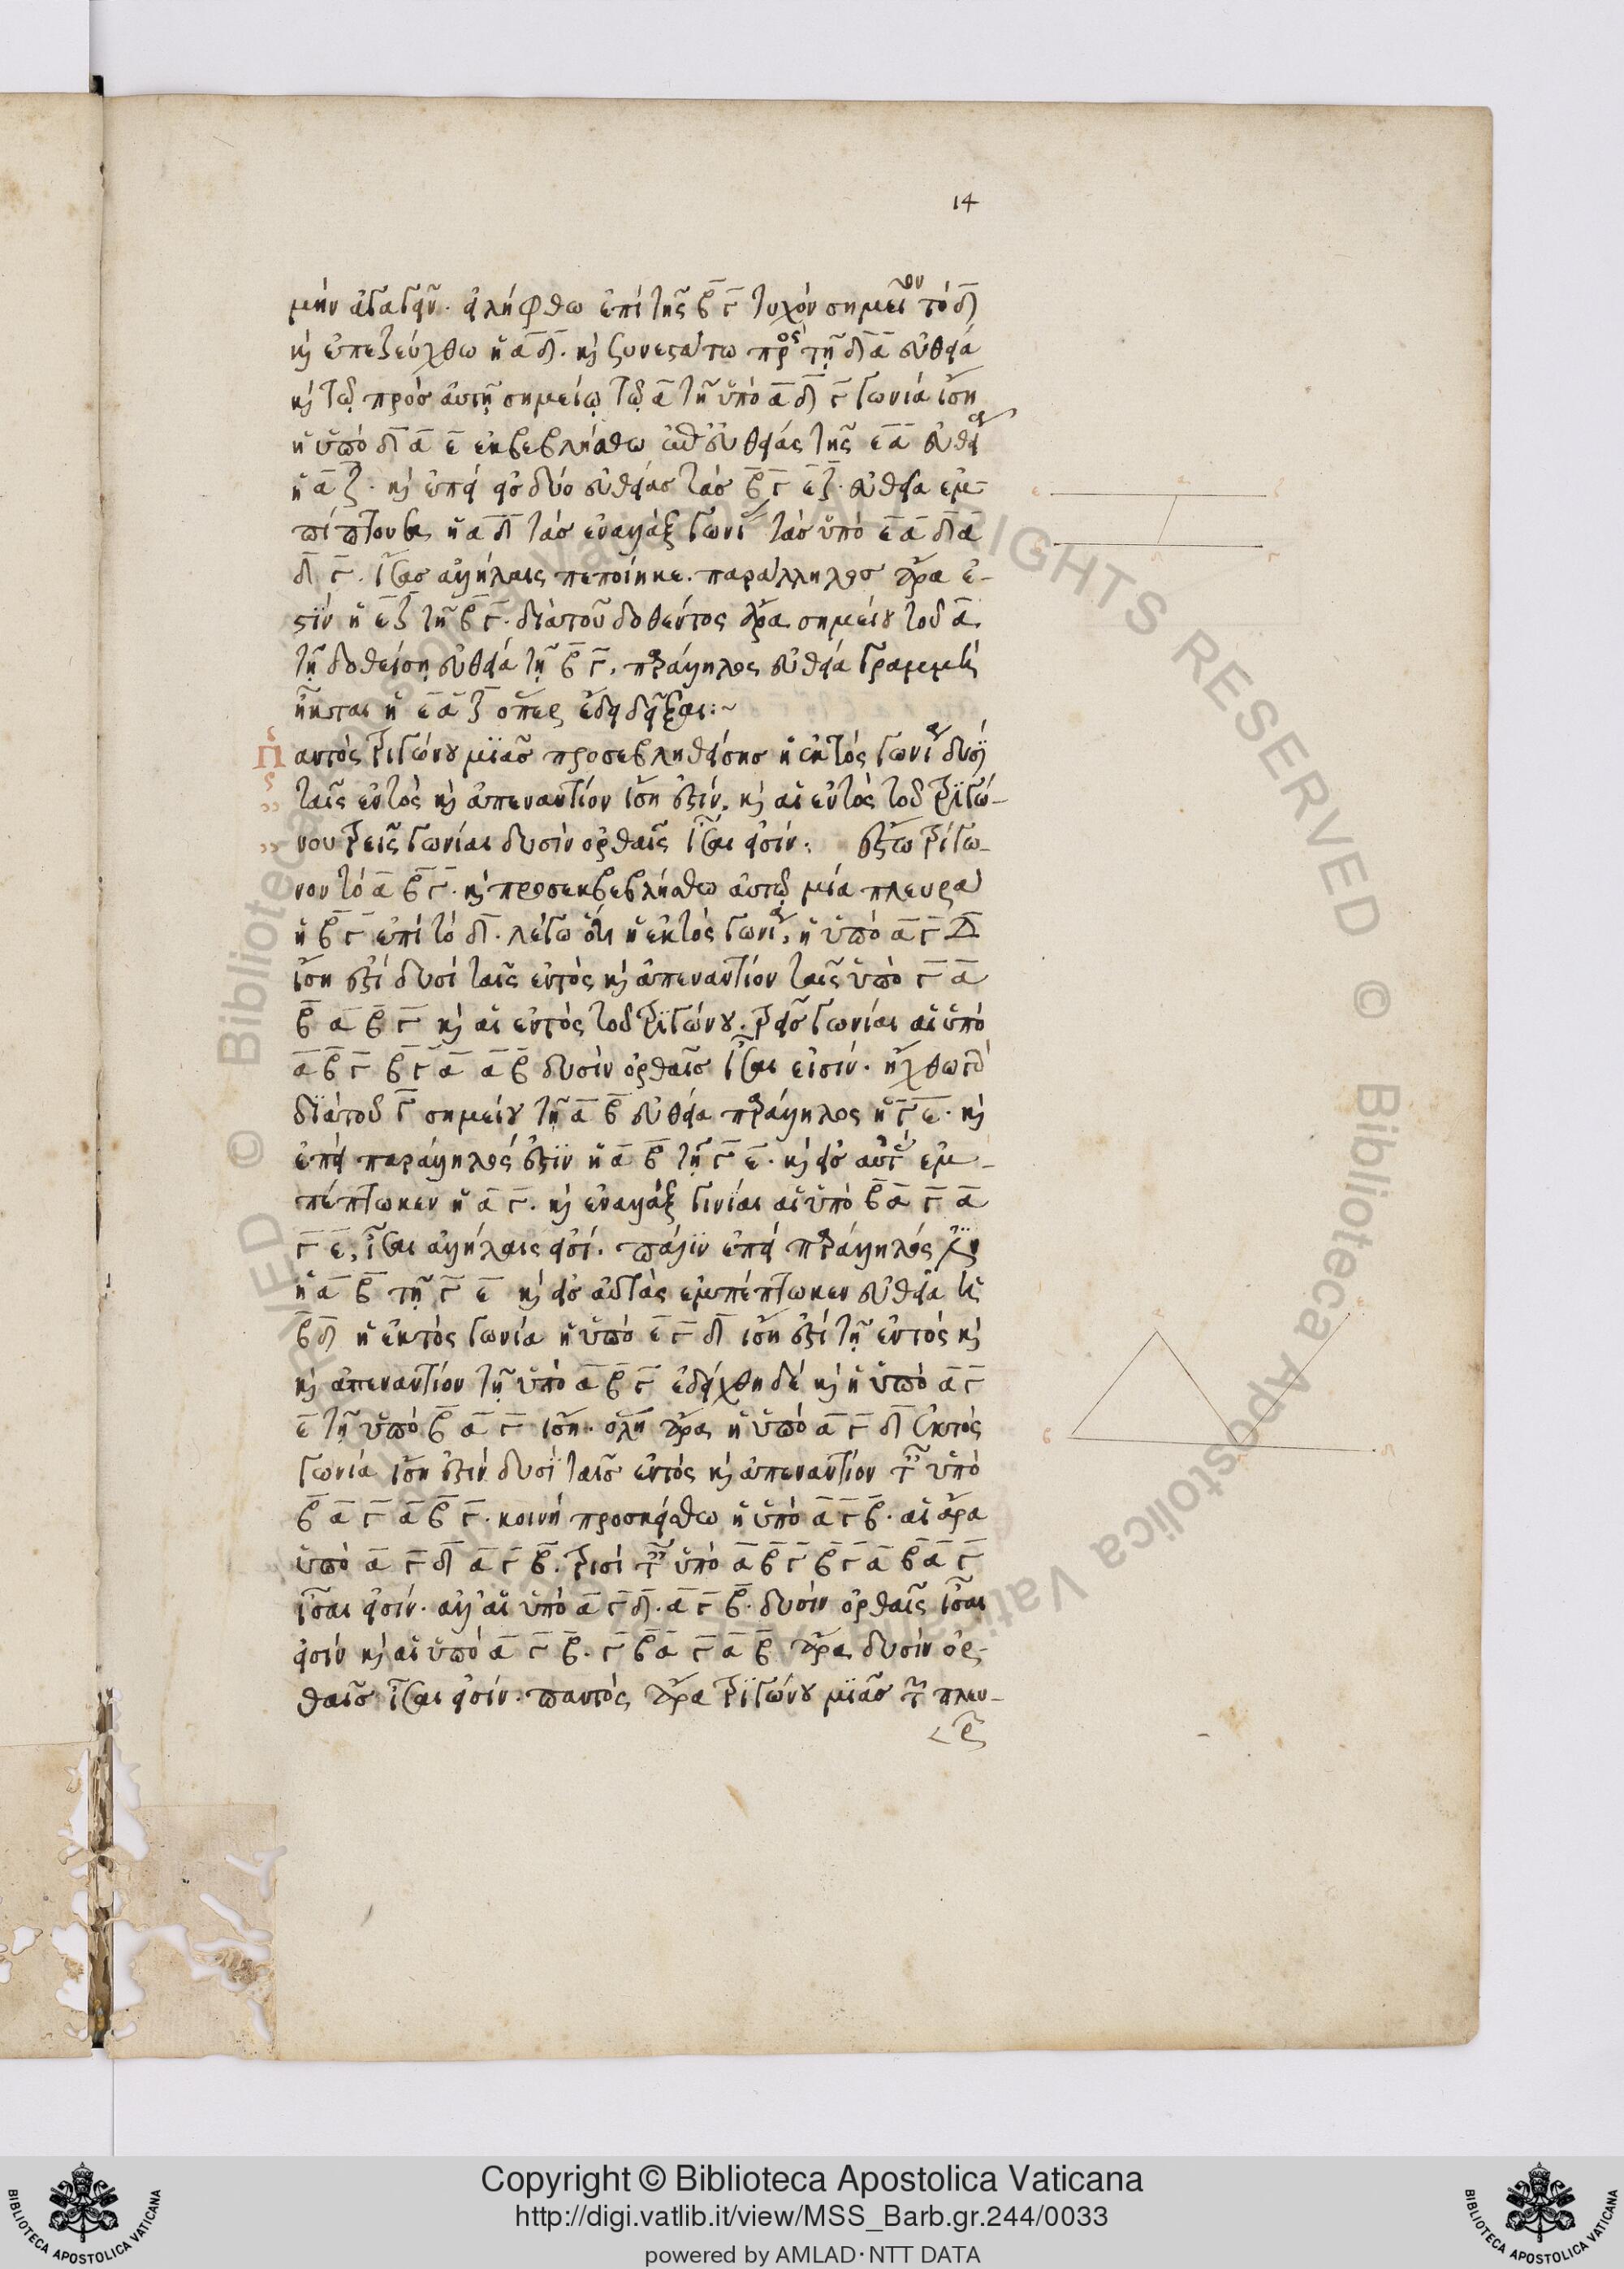 14
μὴν ἀγαγεῖν. εἰλήφθω ἐπὶ τῆς β γ τυχὸν σημεῖον τὸ δ
καὶ ἐπεζεύχθω ἡ α δ. καὶ συνεστάτω πρὸς τῇ δ α εὐθεία
καὶ τῷ πρὸς αὐτῇ σημείῳ τῷ α τῇ ὑπὸ α δ γ γωνία ἴση
ἡ ὑπὸ δ α ε ἐκβεβλήσθω ἐπ' εὐθείας τῆς ε α εὐθεῖα
ἡ α ζ. καὶ ἐπεὶ εἰς δύο εὐθείας τὰς β γ ε ζ. εὐθεῖα ἐμ-
πίπτουσα ἡ α δ τὰς ἐναλλὰξ γωνίας τὰς ὑπὸ ε α δ α
δ γ. ἴσας ἀλλήλαις πεποίηκε. παράλληλος ἄρα ἐ-
στὶν ἡ ε ζ τῇ β γ. διὰ τοῦ δοθέντος ἄρα σημείου τοῦ α
τῇ δοθείσῃ εὐθεία τῇ β γ. παράλληλος εὐθεῖα γραμμὴ
ἦκται ἡ ε α ζ ὅπερ ἔδει δεῖξαι:~
Παντὸς τριγώνου μιᾶς προσεβληθείσης ἡ ἐκτὸς γωνία δυσὶ
ταῖς ἐντὸς καὶ ἀπεναντίον ἴση ἐστίν. καὶ αἱ ἐντὸς τοῦ τριγώ-
νου τρεῖς γωνίαι δυσὶν ὀρθαῖς ἴσαι εἰσίν. ἔστω τρίγω-
νον τὸ α β γ. καὶ προσεκβεβλήσθω αὐτῷ μία πλευρὰ
ἡ β γ ἐπὶ τὸ δ. λέγω ὅτι ἡ ἐκτὸς γωνία, ἡ ὑπὸ α γ Δ
ἴση ἐστὶ δυσὶ ταῖς ἐντὸς καὶ ἀπεναντίον ταῖς ὑπὸ γ α
β α β γ καὶ αἱ ἐντὸς τοῦ τριγώνου. τρεῖς γωνίαι αἱ ὑπὸ
α β γ β γ α α β δυσὶν ὀρθαῖς ἴσαι εἰσίν. ἤχθω γὰρ
διὰ τοῦ γ σημείου τῇ α β εὐθεία παράλληλος ἡ γ ε. καὶ
ἐπεὶ παράλληλός ἐστιν ἡ α β τῇ γ ε. καὶ εἰς αὐτὰς ἐμ-
πέπτωκεν ἡ α γ. καὶ ἐναλλὰξ γωνίαι αἱ ὑπὸ β α γ α
γ ε, ἴσαι ἀλλήλαις εἰσί. πάλιν ἐπεὶ παράλληλός ἐστιν
ἡ α β τῇ γ ε καὶ εἰς αὐτὰς ἐμπέπτωκεν εὐθεῖα ἡ
β δ ἡ ἐκτὸς γωνία ἡ ὑπὸ ε γ δ ἴση ἐστὶ τῇ ἐντὸς καὶ
καὶ ἀπεναντίον τῇ ὑπὸ α β γ ἐδείχθη δὲ καὶ ἡ ὑπὸ α γ
ε τῇ ὑπὸ β α γ ἴση. ὅλη ἄρα ἡ ὑπὸ α γ δ ἐκτὸς
γωνία ἴση ἐστὶν δυσὶ ταῖς ἐντὸς καὶ ἀπεναντίον ταῖς ὑπὸ
β α γ α β γ. κοινὴ προσκείσθω ἡ ὑπὸ α γ β. αἱ ἄρα
ὑπὸ α γ δ α γ β. τρισὶ ταῖς ὑπὸ α β γ β γ α β α γ
ἴσαι εἰσίν. ἀλλ' αἱ ὑπὸ α γ δ. α γ β. δυσὶν ὀρθαῖς ἴσαι
εἰσὶν καὶ αἱ ὑπὸ α γ β. γ β α γ α β ἄρα δυσὶν ὀρ-
θαῖς ἴσαι εἰσίν. παντὸς ἄρα τριγώνου μιᾶς τῶν πλευ-
Copyright © Biblioteca Apostolica Vaticana
http://digi.vatlib.it/view/MSS_Barb.gr.244/0033
powered by AMLAD·NTT DATA